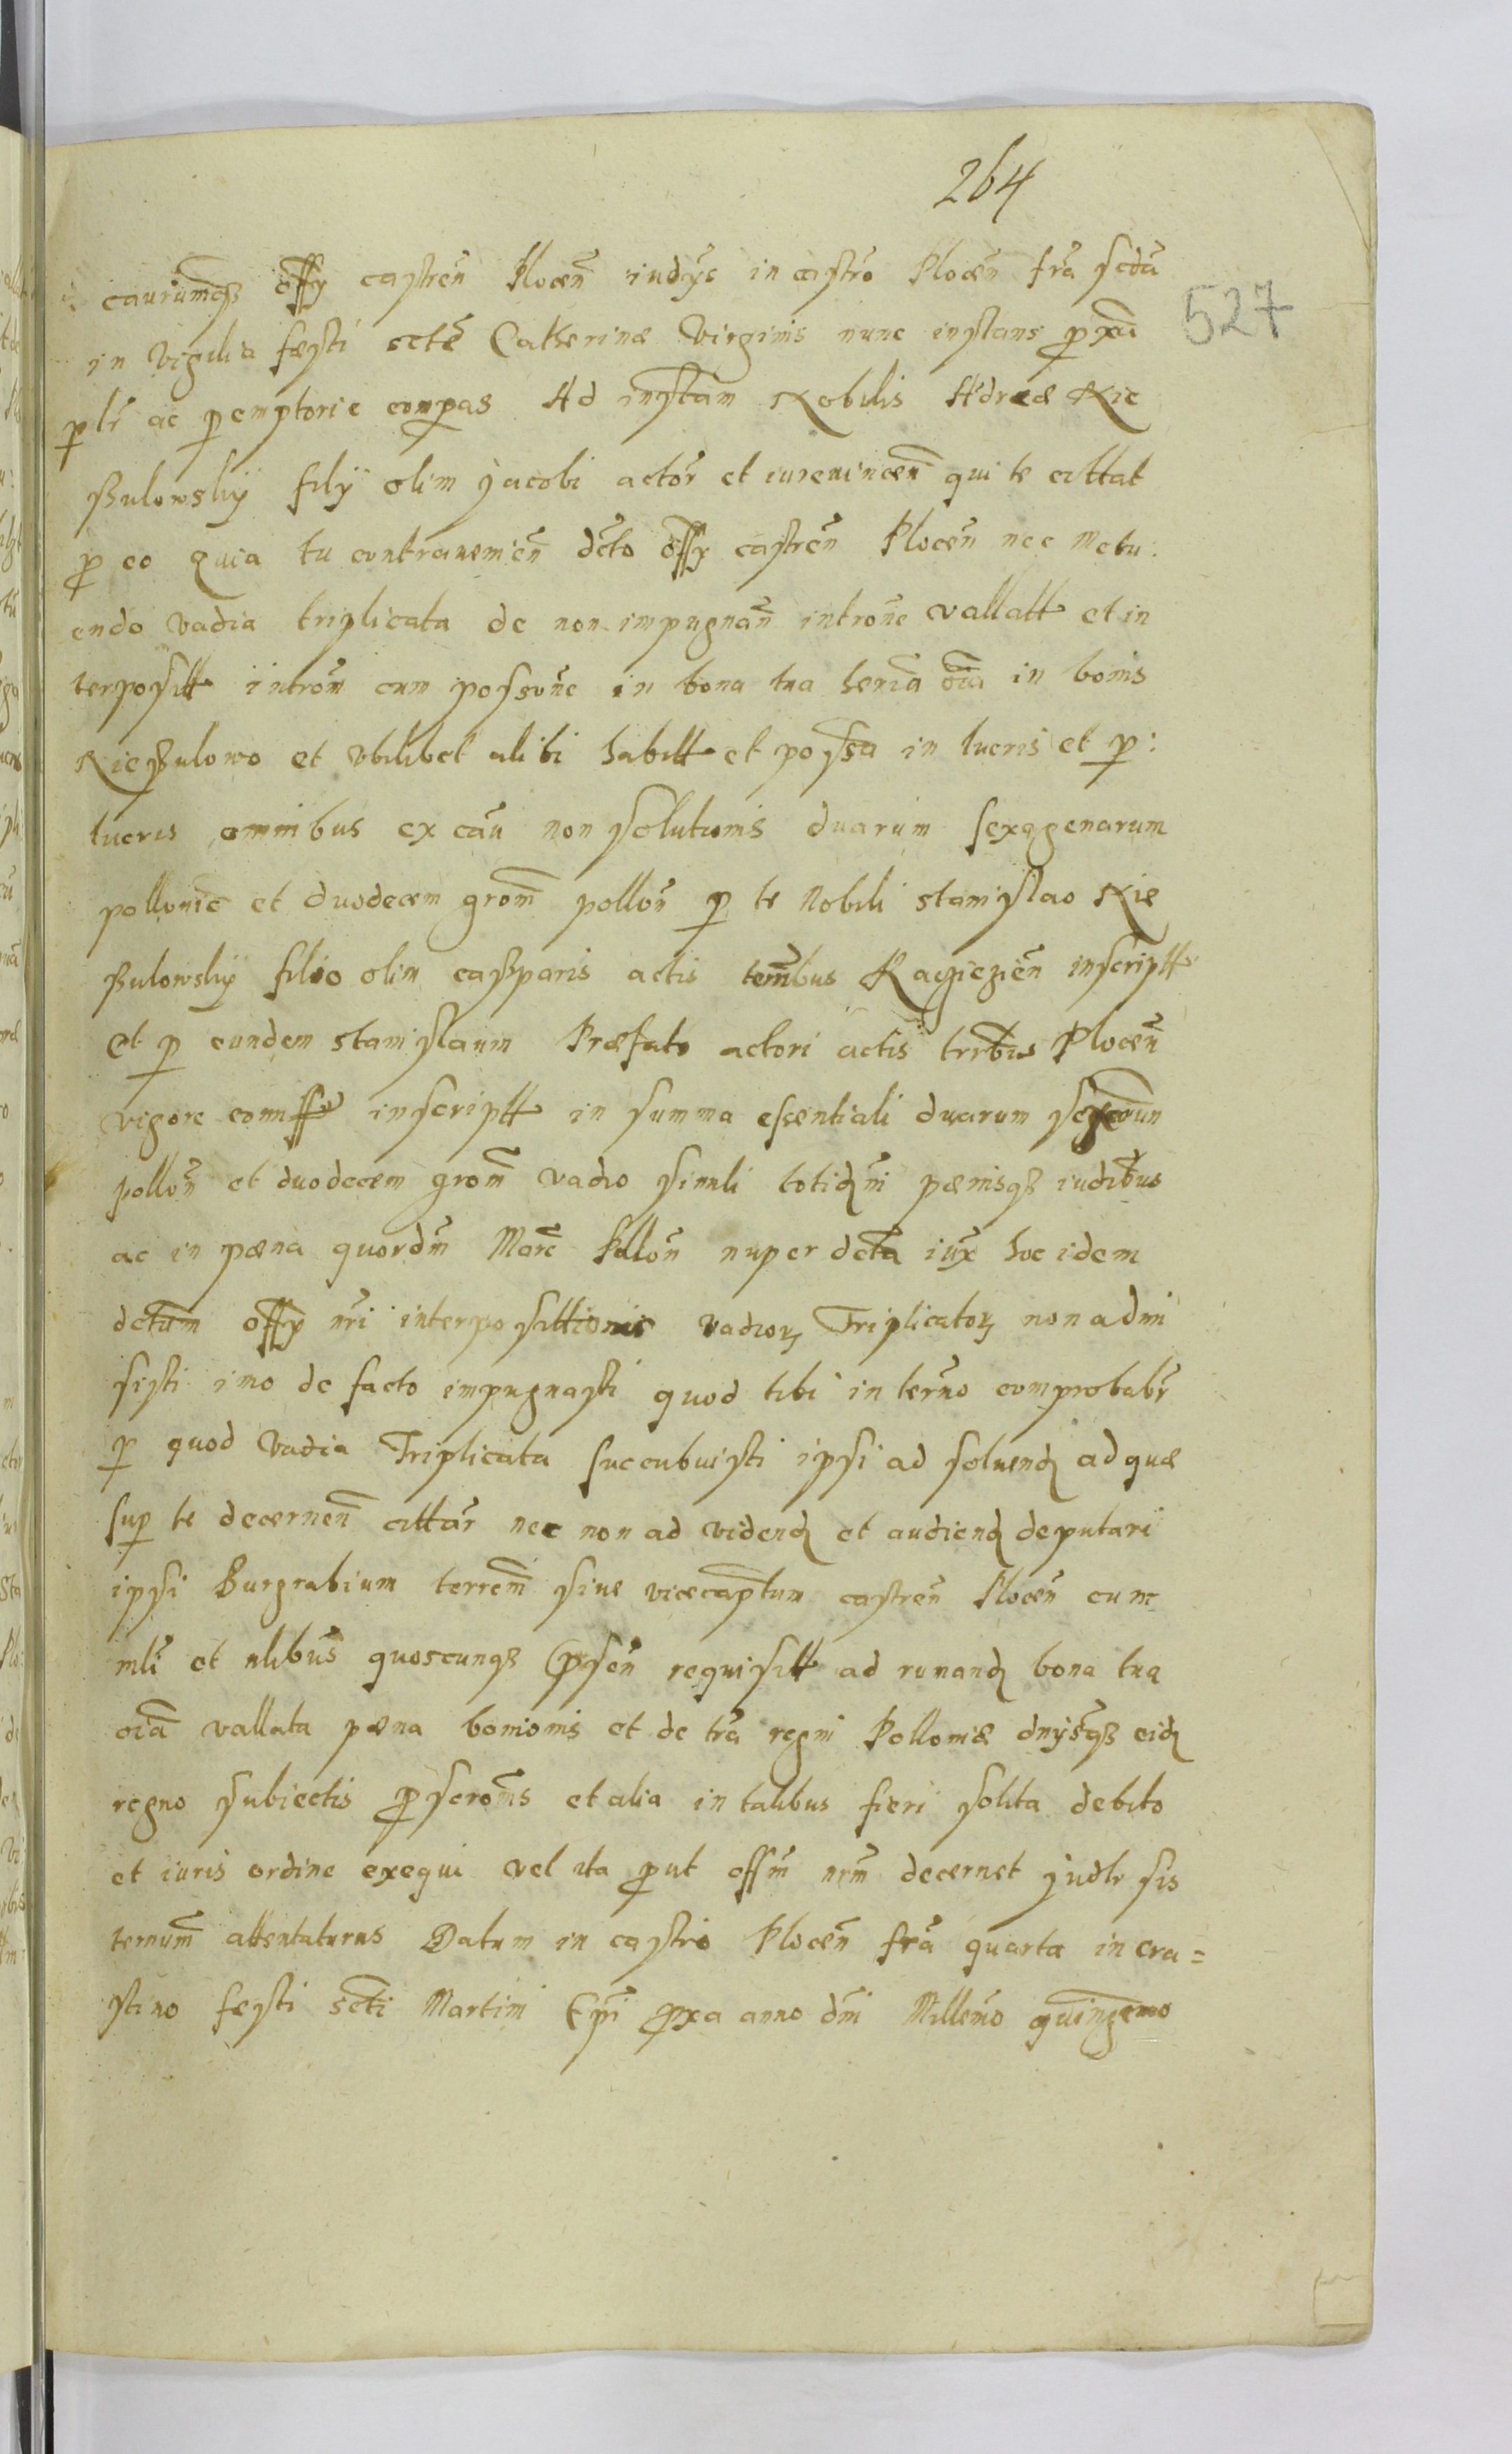 264
527
caurumqȝ offy castren̄ Plocen̄ iudys in castro Plocen̄ fr̄a scd̄a
in vigilia fæsti sctē Catherinæ Virginis nunc instans ꝓxā
ꝑlr̄ ac ꝑemptorie comꝑas Ad instam̄ Nobilis Adreæ Kie
ßulowskӱ filӱ olim Jacobi actor̄ et iureuincen̄ qui te cittat
ꝓ eo quia tu contraueniēn dēto offy castrēn Plocēn nec Metu:
endo vadia triplicata de non impugnan̄ intronē vallatt et in
terpositt intron̄ cum possonē in bona tua heriā oīa in bonis
Kießulowo et vbilibet alibi habitt et possa in lucris et ꝑ:
lucris omnibus ex cāu non solutionis duarum sexagenarum
pollonic̄ et duodecem grom̄ pollon̄ ꝑ te Nobili stanislao Kie
ßulowskӱ filio olim casparis actis tem̄bus Raciezien̄ inscriptt
et ꝑ eundem stanislaum Præfato actori actis trr̄bus Plocen̄
vigore comiss inscriptt in summa essentiali duarum
pollon̄ et duodecem grom̄ vadio simili totiđm pænisqȝ iudib̄us
ac in pæna quordm̄ Marc̄ Pollon̄ nuper dcta iux̄ hoc idem
dctum offy nr̄i interposittionis vadioꝝ Triplicatoꝝ non admi
sisti imo de facto impugnasti quod tibi in ter̄no comprobabr̄
ꝑ quod Vadia Triplicata succubuisti ipsi ad soluenđ ad quæ
suꝑ te decernen̄ cittar̄ nec non ad videnđ et audienđ deputari
ipsi Burgrabium terrem̄ siue vicecaptum castren̄ Plocen̄ cum
mli et nlibus quoscunqȝ requisitt ad rumanđ bona tua
oiā vallata pæna bonionis et de tra regni Polloniæ dnysqȝ eiđ
regno subiectis ꝓscronis et alia in talibus fieri solita debito
et iuris ordine exequi vel ita ꝓut offm nrm decernet judlr sis
ternum attentaturus Datum in castro Plocen̄ fr̄a quarta in cra=
stino fæsti sc̄ti Martini Ep̄i ꝓxa anno dm̄i Millem̄o quingemo